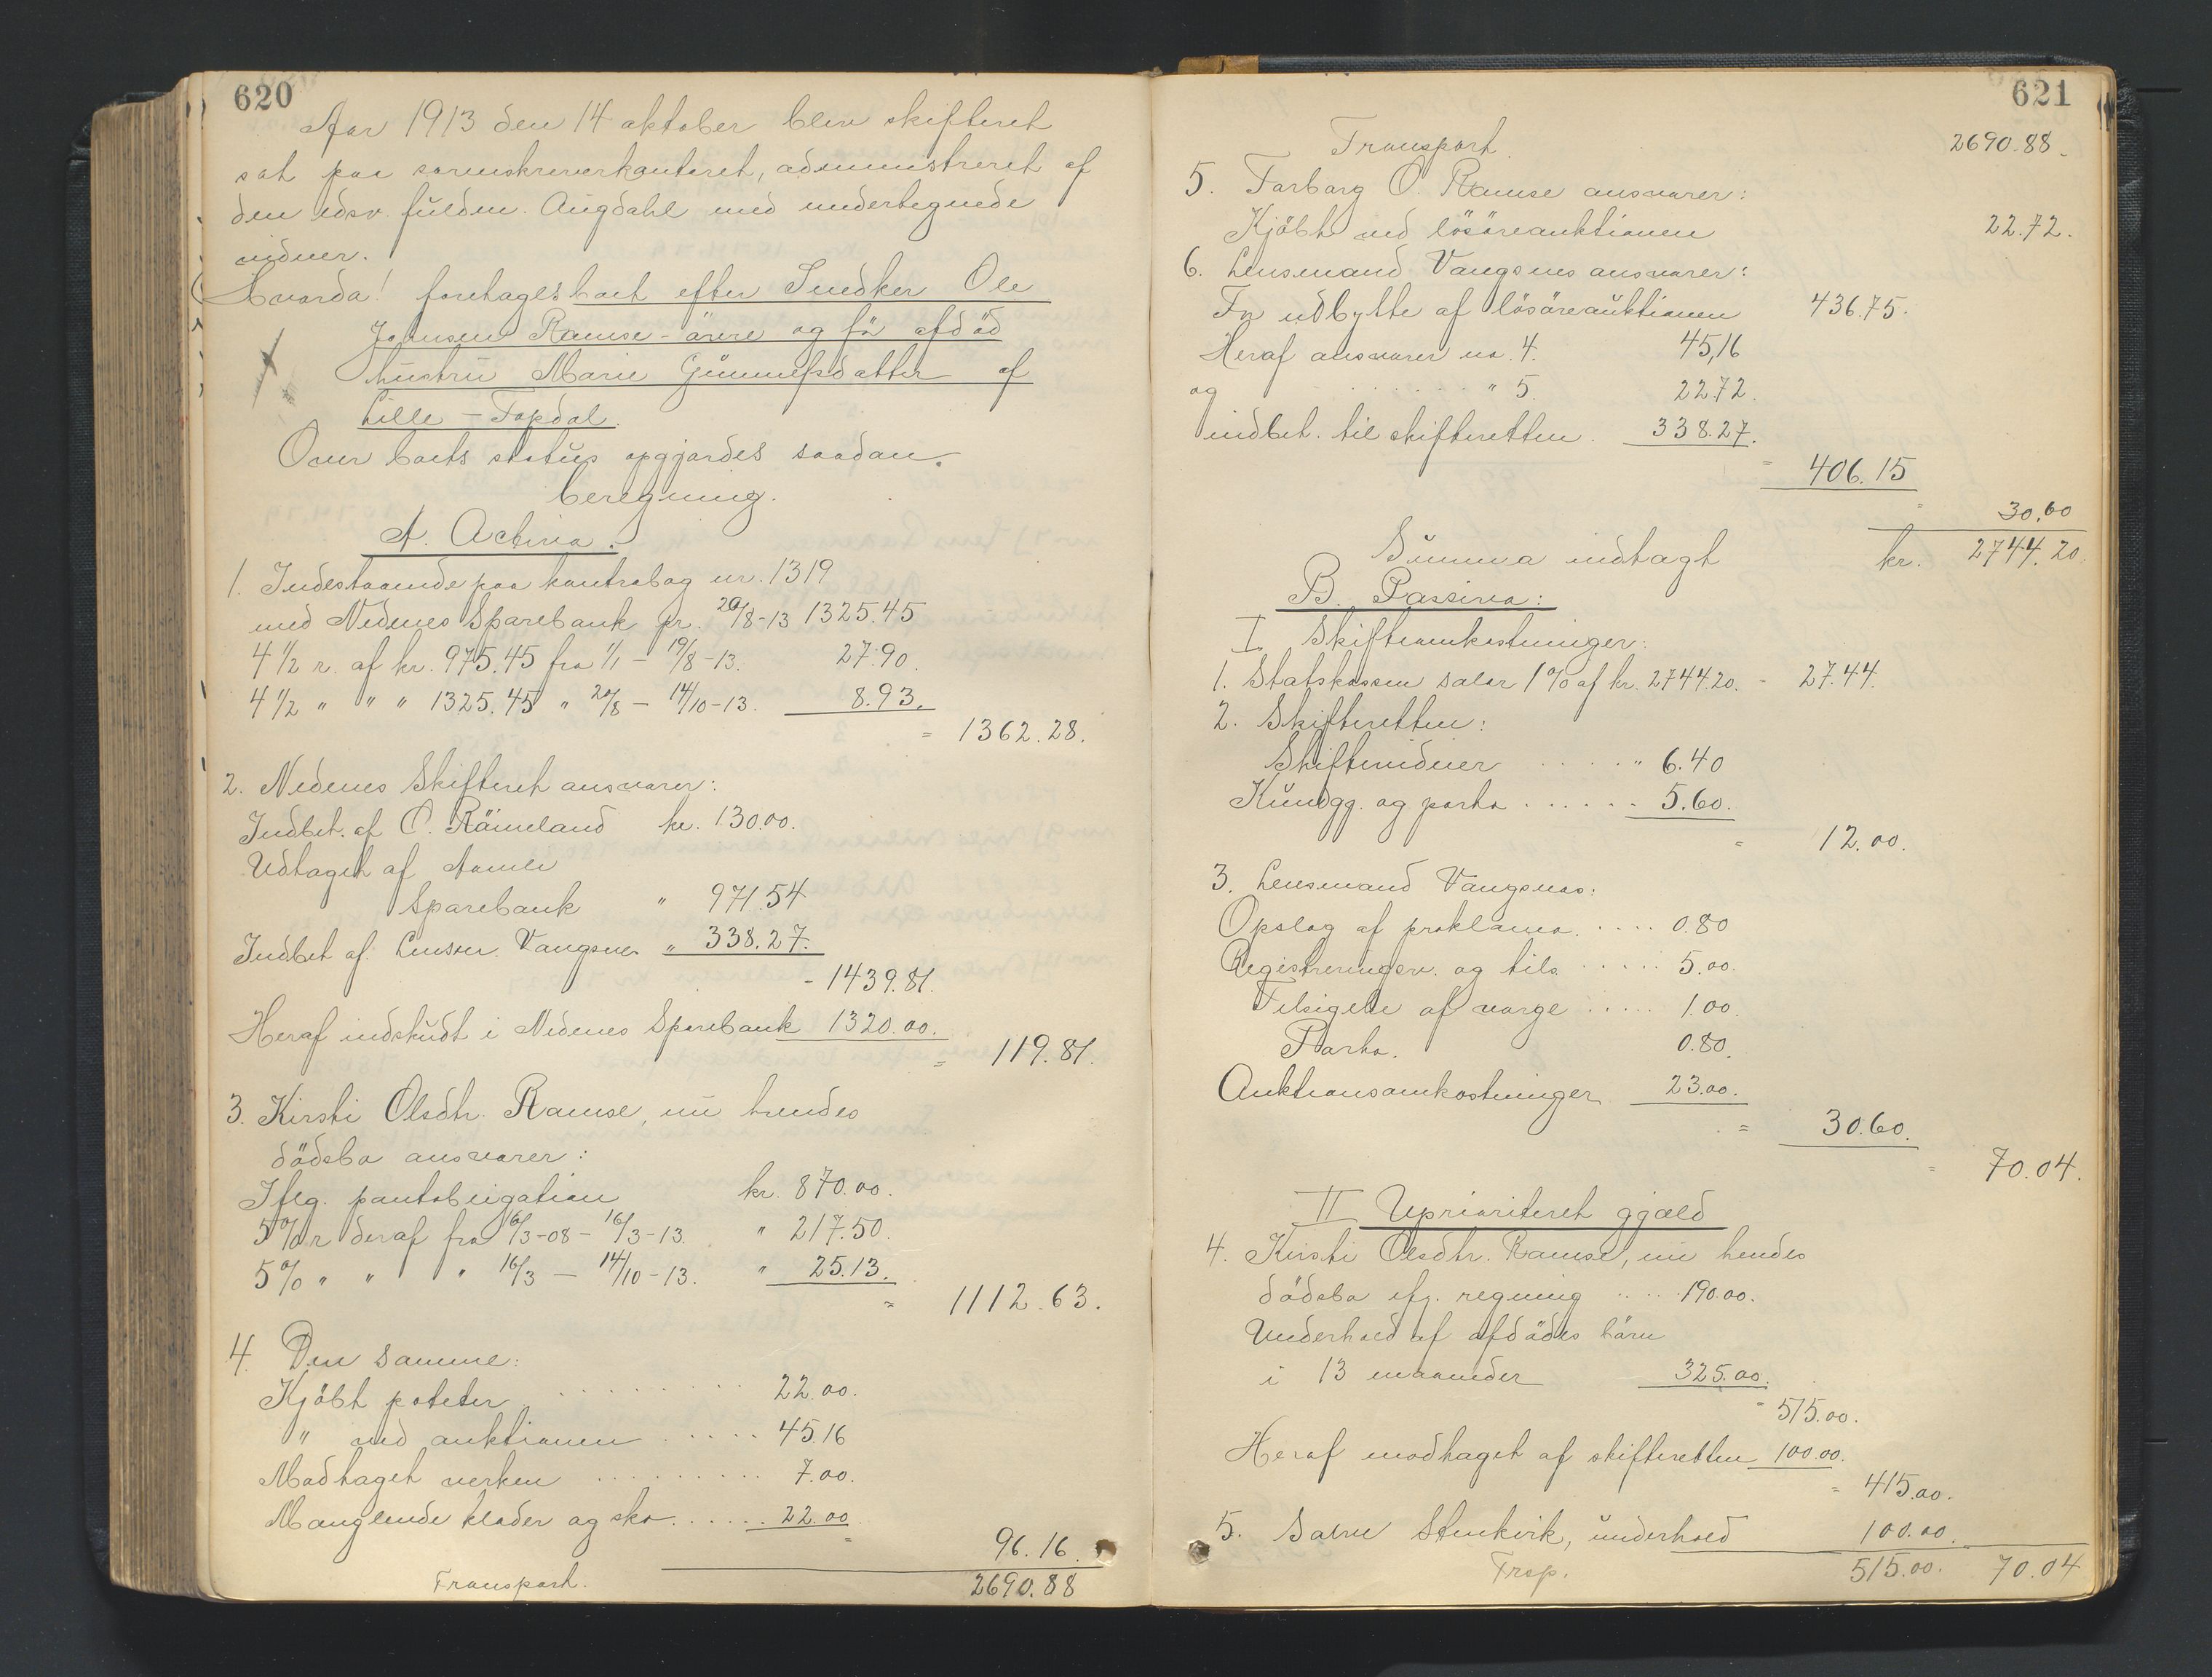 620
Aar 1913 den 14 oktober blev skifteret
sat paa sorenskriverkontoret, administreret af
den edsv. fuldm. Augdahl med undertegnede
vidner.
Hvorda! foretoges boet efter Indker Ole
Johnsen Ramse-øvre og før afdød
hustru Marie Gunnufsdatter af
Lille-Topdal.
Over boets status opgjordes saadan
beregning.
A. Activa.
1. Indestaaende paa kontrabog nr. 1319
med Nedenes Sparebank pr. 20/8-13 1325.45
4 1/2 r. af kr. 975.45 fra 1/1 - 19/8-13. 27.90.
4 1/2 " " " 1325.45 " 20/8 - 14/10-13. 8.93.
= 1362.28.
2. Nedenes Skifteret ansvarer:
Indbet. af O. Rämeland kr. 130.00.
Udtaget af Aamli
Sparebank " 971.54
Indbet af. Lensm. Vangsnes " 338.27.
- 1439.81.
Heraf indskudt i Nedenes Sparebank 1320.00.
= 119.81.
3. Kirsti Olsdtr. Ramse, nu hendes
dödsbo ansvarer:
Iflg. pantobligation kr. 870.00.
5% r deraf fra 16/3-08 - 16/3-13. " 217.50.
5% " " " 16/3 - 14/10-13. " 25.13.
= 1112.63.
4. Den samme:
Kjöbt poteter ......... 22.00.
" ved auktionen ..... 45.16
Modtaget verken ......... 7.00.
Manglende klæder og sko ...... 22.00
= 96.16.
Transport. 2690.88
621
Transport. 2690.88.
5. Torborg O. Ramse ansvarer:
Kjöbt ved lösöreauktionen 22.72.
6. Lensmand Vangsnes ansvarer:
For udbytte af lösöreauktionen 436.75.
Heraf ansvarer no. 4. 45,16
og ....... " 5. 22.72.
indbet. til skifteretten. 338.27.
= 406.15
= 30.60
Summa indtægt kr. 2744.20.
B. Passiva:
I Skifteomkostninger:
1. Statskassen salær 1% af kr. 2744.20. - 27.44.
2. Skifteretten:
Skiftevidner ..... " 6.40
Kundgj. og porto ...... 5.60.
= 12.00.
3. Lensmand Vangsnes:
Opslag af proklama. .... 0.80
Registreringsv. og tils. ..... 5.00.
Tilsigelse af værge ..... 1.00.
Porto. 0.80.
Auktionsomkostninger 23.00.
= 30.60.
= 70.04.
II Uprioriteret gjæld
4. Kirsti Olsdtr. Ramse, nu hendes
dödsbo iflg. regning ..... 190.00.
Underhold af afdödes börn
i 13 maaneder 325.00.
= 515.00.
Heraf modtaget af skifteretten 100.00.
= 415.00.
5. Salve Stenkvik, underhold 100.00.
Trsp. 515.00. 70.04